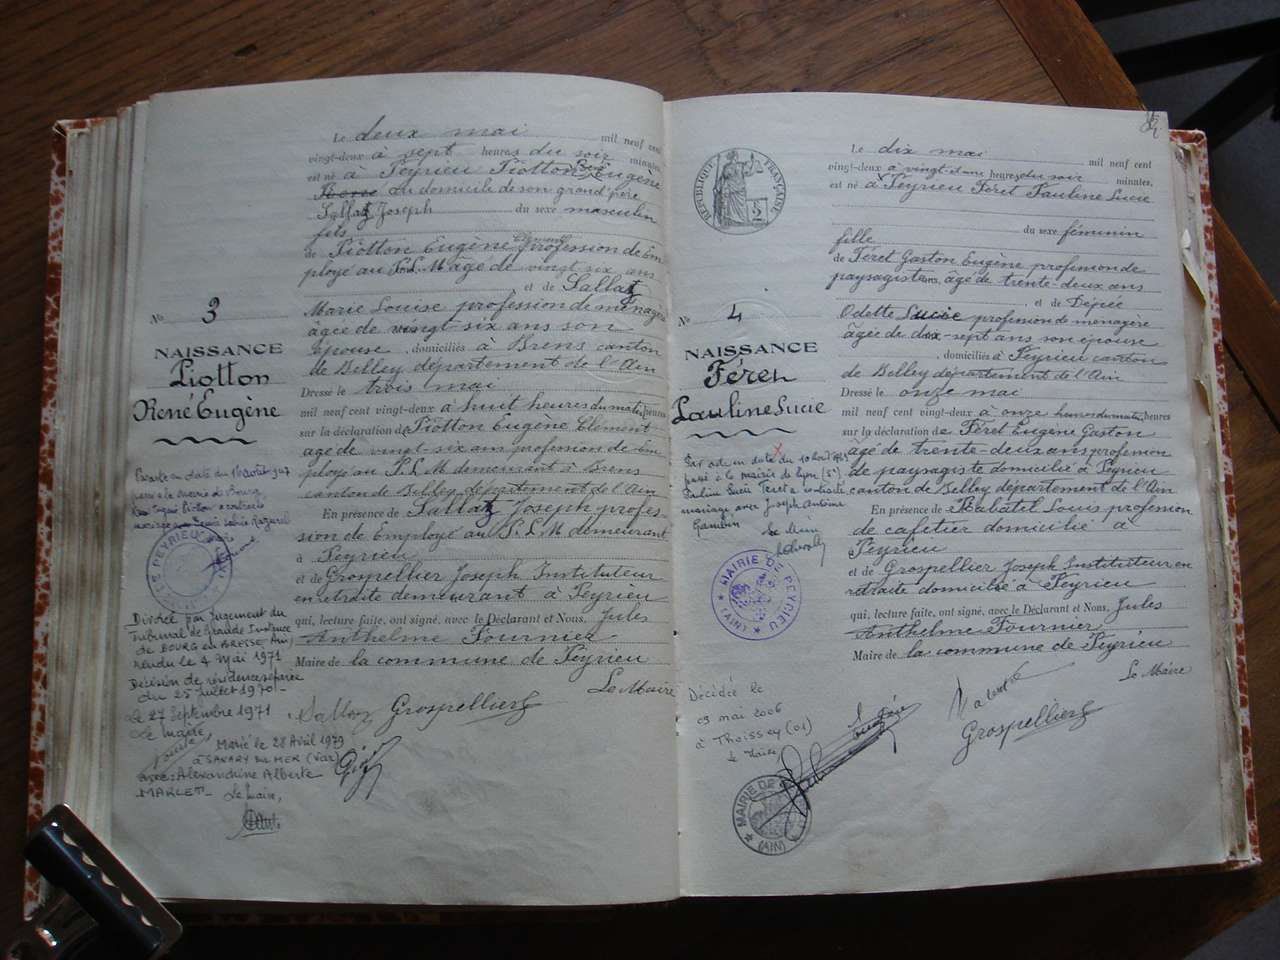 Le deux mai mil neuf cent
vingt-deux à sept heures du soir minutes,
est né à Peyrieu Piotton René Eugène
au domicile de son grand père
Sallaz Joseph du sexe masculin
fils
de Piotton Eugène Clément profession de Em
ployé au P.L.M âgé de vingt six ans
et de Sallaz
Marie Louise profession de ménagère
âgée de vingt-six ans son
épouse, domiciliés à Brens canton
de Belley département de l'Ain
Dressé le trois mai
mil neuf cent vingt-deux à huit heures du matin heures
sur la déclaration de Piotton Eugène Clément
age de vingt-six ans profession de Em
ploye au P.L.M demeurant à Brens
canton de Belley département de l'Ain
En présence de Sallaz Joseph profes
sion de Employé au P.L.M demeurant
à Peyrieu
et de Grospellier Joseph Instituteur
en retraite demeurant à Peyrieu
qui, lecture faite, ont signé, avec le Déclarant et Nous, Jules
Anthelme Fournier
Maire de la commune de Peyrieu
Le Maire
Sallaz Grospellier
No 3
NAISSANCE
Piotton
René Eugène
MAIRIE DE PEYRIEU
Divorcé par Jugement du
Tribunal de Grande Instance
de BOURG en BRESSE Ain
rendu le 4 Mai 1971
Décision de résidence séparée
du 25 juillet 1970-
Le 27 Septembre 1971
Le maire,
Marié le 28 Avril 1979
à SANARY sur MER (Var)
avec: Alexandrine Alberte
MARLET-
Le Maire,
RÉPUBLIQUE FRANÇAISE
Le dix mai mil neuf cent
vingt-deux à vingt et une heures du soir minutes,
est né à Peyrieu Féret Pauline Lucie
du sexe féminin
fille
de Féret Gaston Eugène profession de
paysagiste âgé de trente-deux ans
et de Dépée
Odette Lucie profession de ménagère
âgée de dix-sept ans son épouse
, domiciliés à Peyrieu canton
de Belley département de l'Ain
Dressé le onze mai
mil neuf cent vingt-deux à onze heures du matin heures
sur la déclaration de Féret Eugène Gaston
âge de trente-deux ans profession
de paysagiste domicilié à Peyrieu
canton de Belley département de l'Ain
En présence de Rabatel Louis profession
de cafetier domicilié à
Peyrieu
et de Grospellier Joseph Instituteur en
retraite domicilié à Peyrieu
qui, lecture faite, ont signé, avec le Déclarant et Nous, Jules
Anthelme Fournier
Maire de la commune de Peyrieu
Le Maire
Rabatel
Grospellier
No 4
NAISSANCE
Féret
Pauline Lucie
passé à la mairie de Lyon
Pauline Lucie Feret a contracté
mariage avec Joseph Antoine
MAIRIE DE PEYRIEU
(AIN)
Décédée le
03 mai 2006
à Thoissey (01)
Le Maire
MAIRIE DE
(AIN)